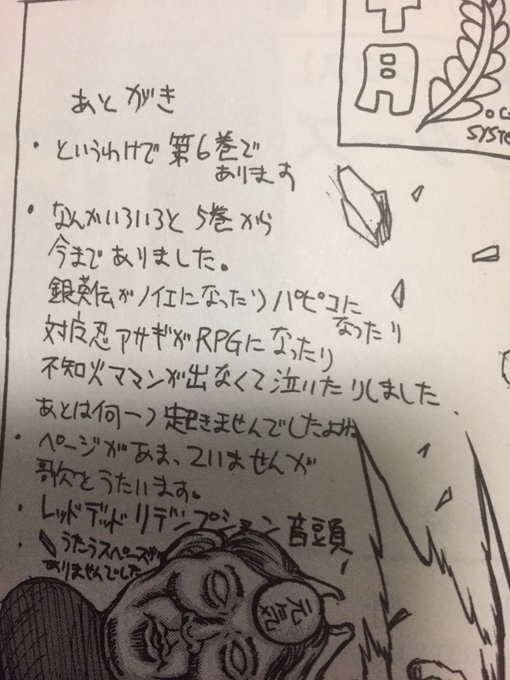 あとがき
・というわけで第6巻で
あります
・なんかいろいろと5巻から
今までありました。
銀英伝がノイエになったりパピコに
なったり
対反忍アサギがRPGになったり
不知火ママンが出なくて泣いたりしました
あとは何一つ起きませんでしたよね
・ページがあまっていませんが
歌をうたいます。
・レッドデッドリデンプション音頭
・うたうスペースが
ありませんでした
元気
十月
SYSTE